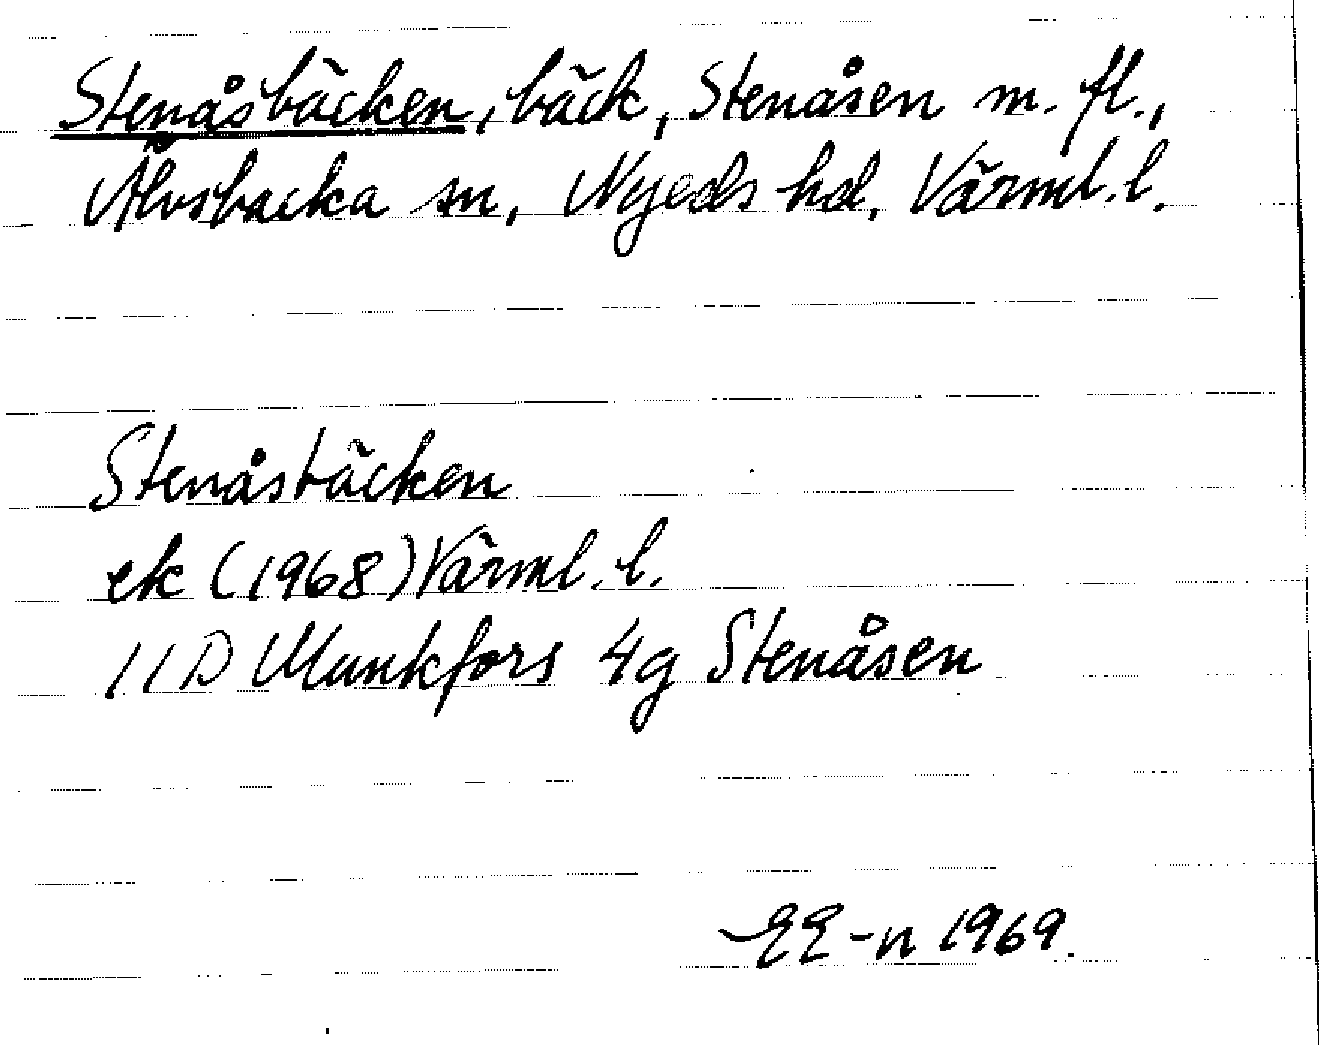 Stenåsbäcken, bäck, Stenåsen m. fl.,
Älvsbacka sn, Nyeds hd, Värml. l.
Stenåsbäcken
ek (1968) Värml. l.
11D Munkfors 4g Stenåsen
EE-n 1969.